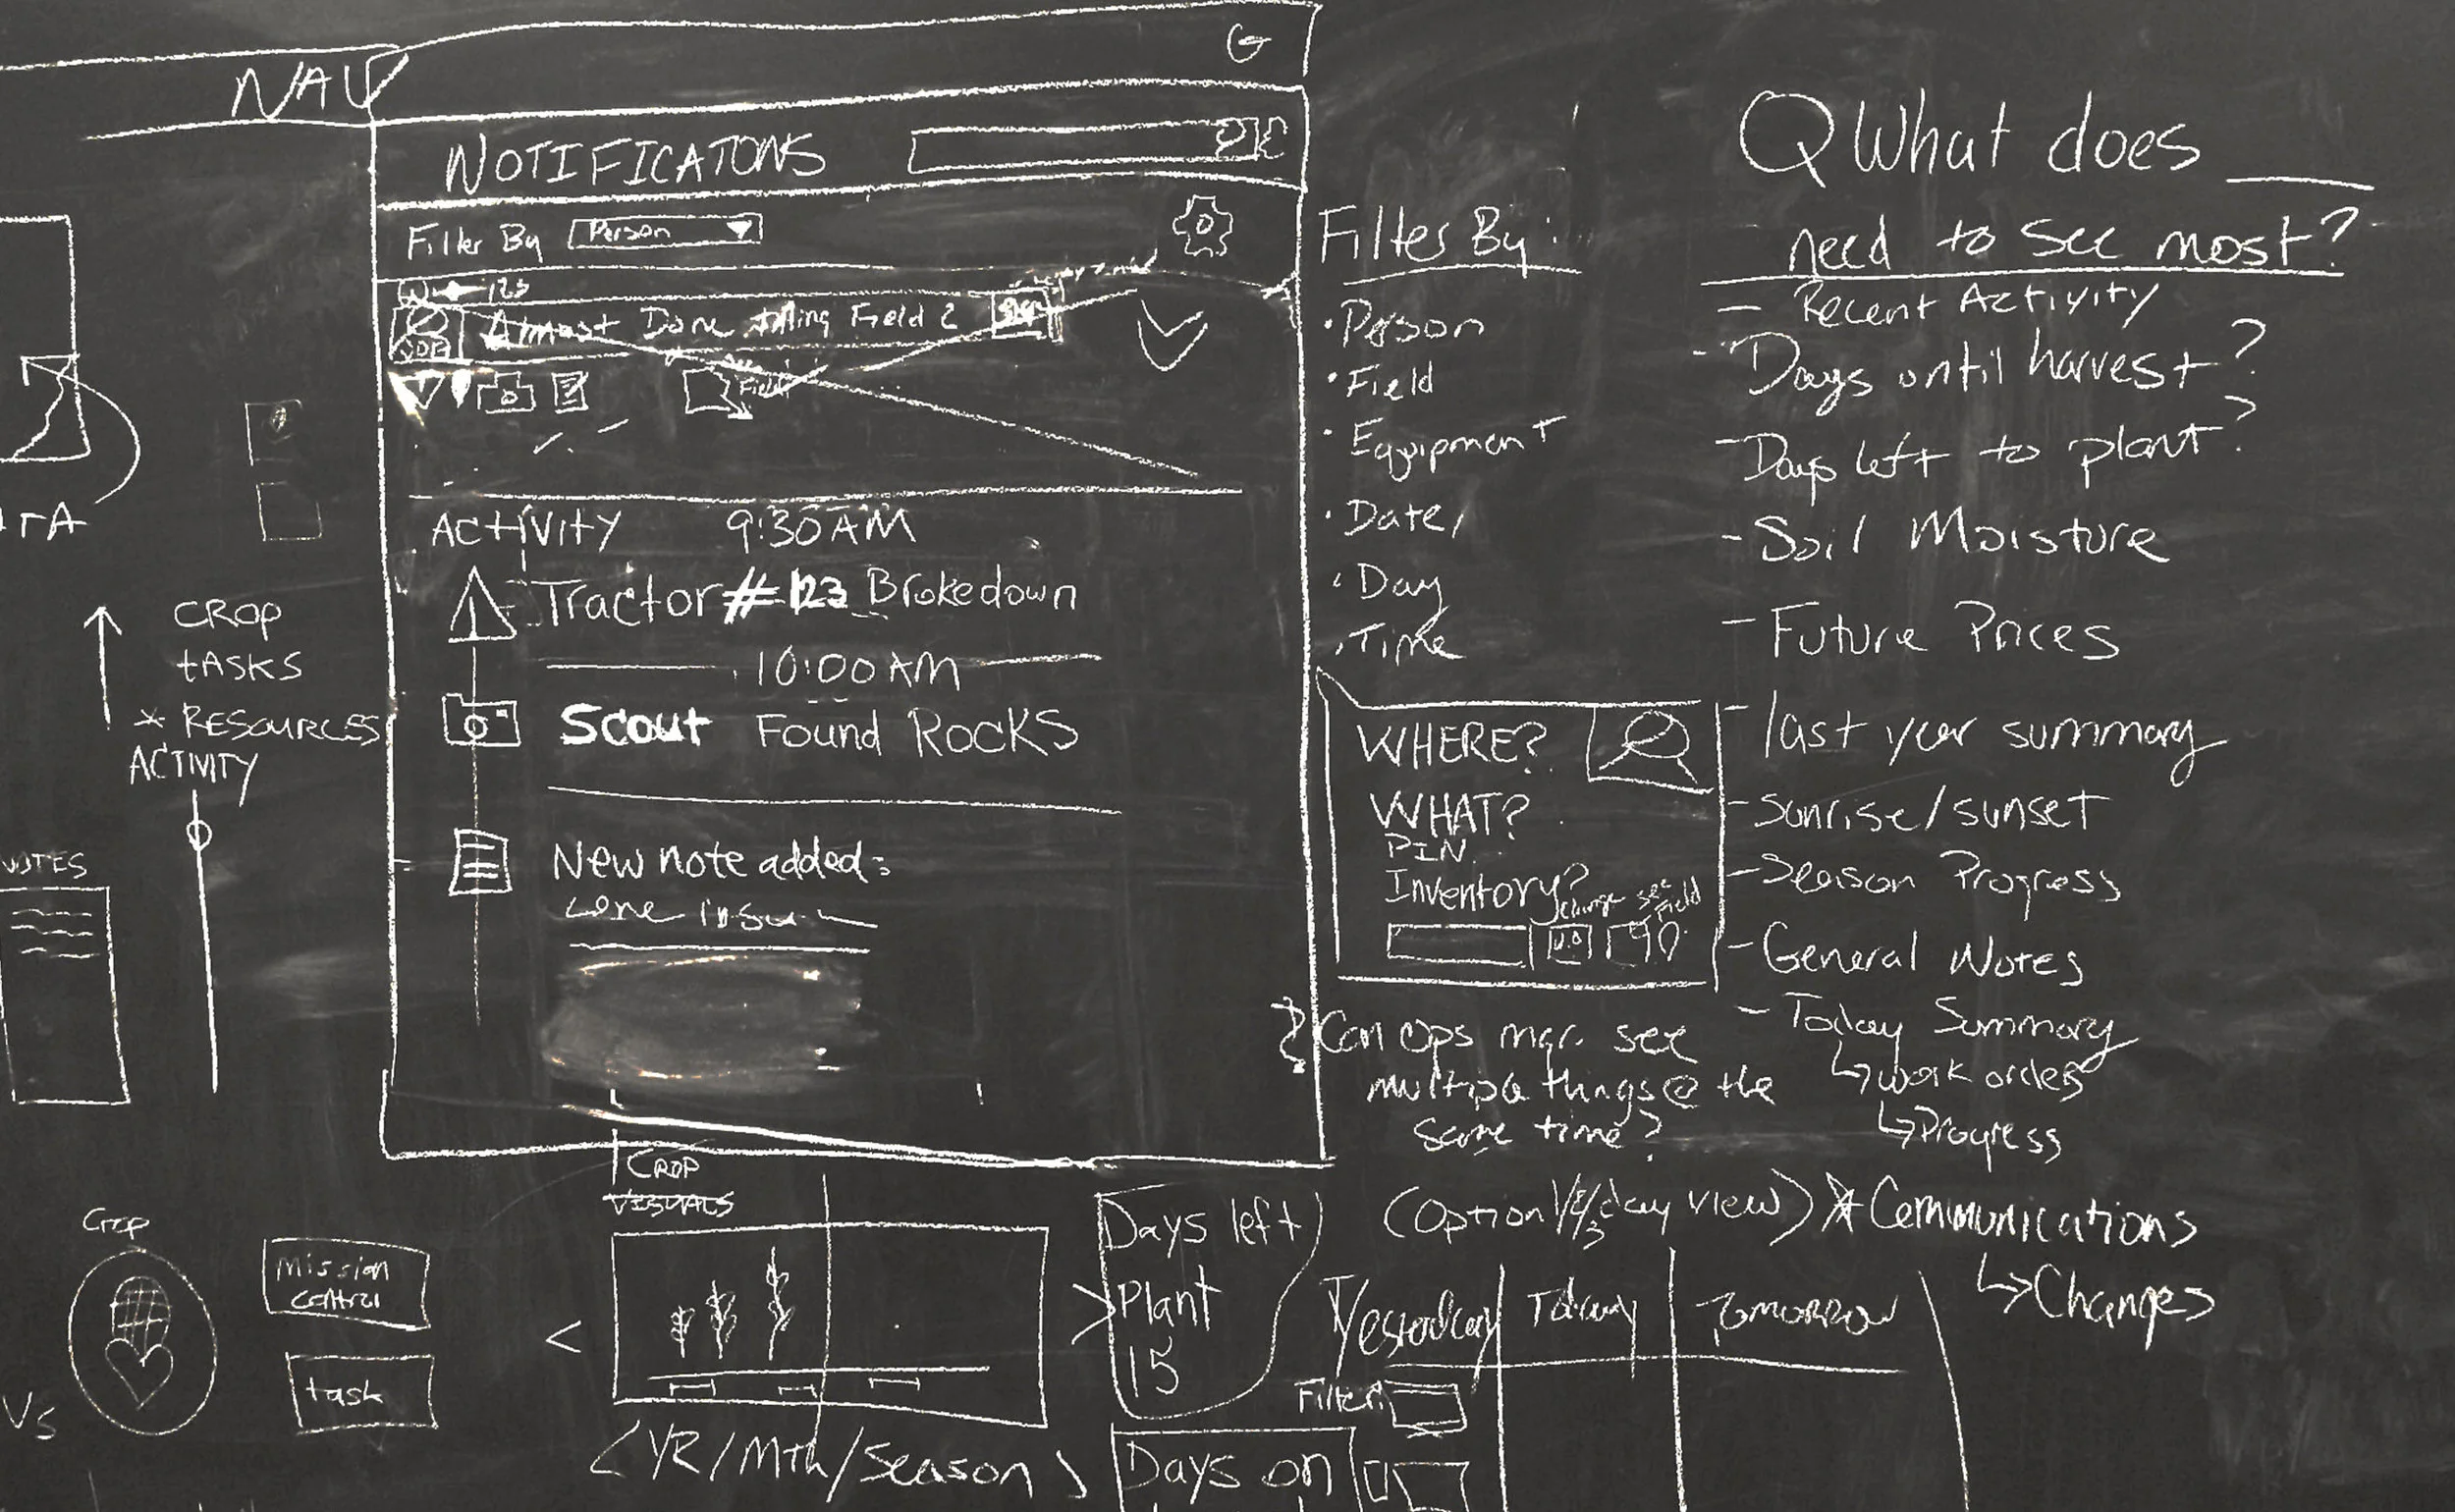 NAV
G
NOTIFICATONS
Filter By Person
123
Almost Done tilling Field 2
Field
ACTIVITY 9:30 AM
Tractor #123 Brokedown
10:00 AM
Scout Found ROCKS
New note added:
CROP
tASKS
* RESOURCES
ACTIVITY
NOTES
Crop
mission
control
task
VS
CROP
VISUALS
<
>
< YR/Mth/Season >
Days left
Plant
15
Days on
Filter By:
• Person
• Field
• Equipment
• Date/
• Day
• Time
WHERE?
WHAT?
PIN
Inventory?
change see
Field
Can Ops mgr. see
multiple things @ the
same time?
(Option 1/3 day view)
Yesterday Today Tomorrow
Filter:
Q What does ___
need to see most?
- Recent Activity
- Days until harvest?
- Days left to plant?
- Soil Moisture
- Future Prices
- last year summary
- Sunrise/sunset
- Season Progress
- General Notes
- Today Summary
↳ work orders
↳ Progress
* Communications
↳ Changes